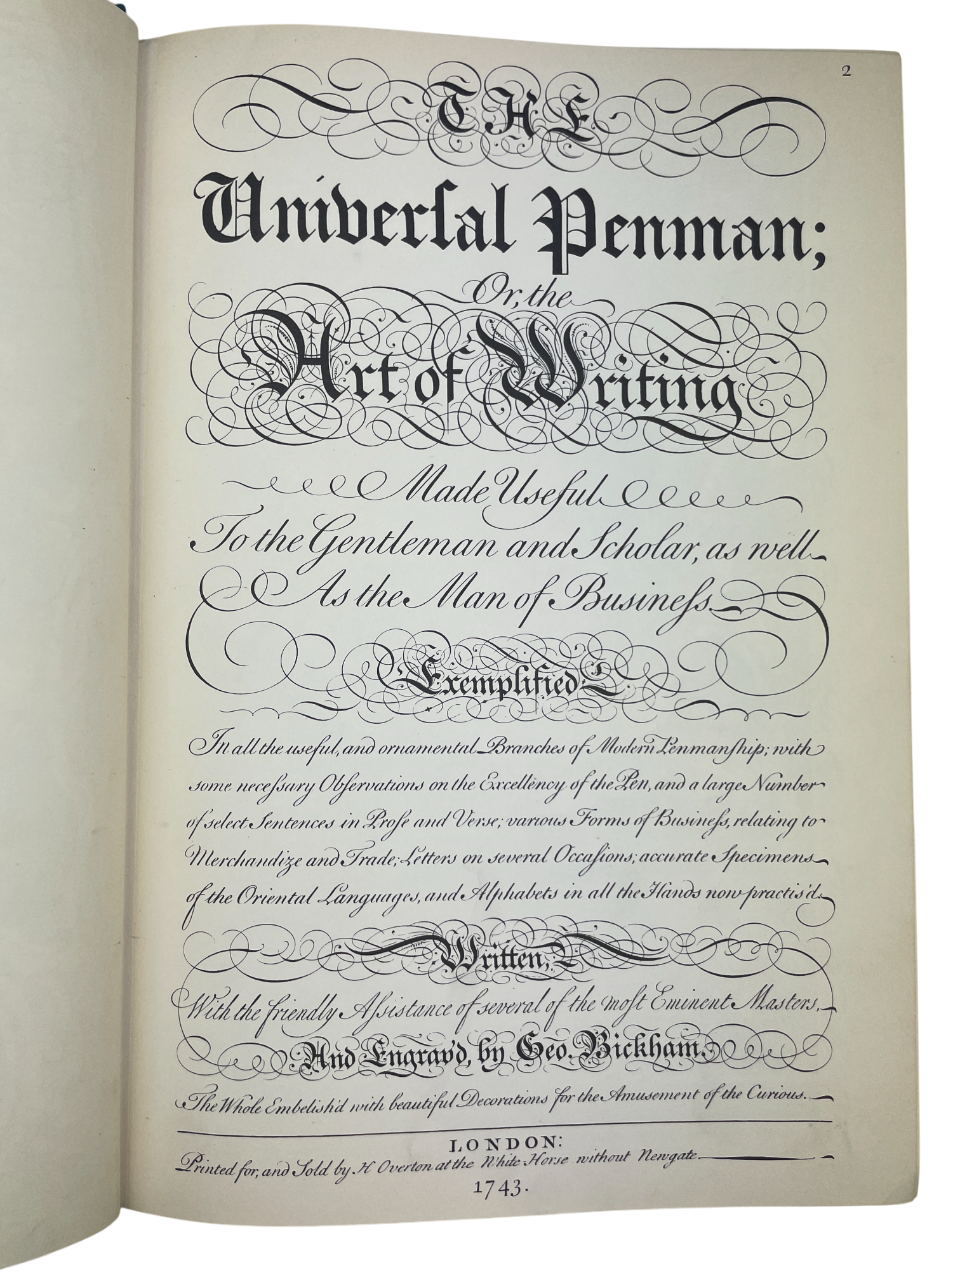 2
THE
Univerſal Penman;
Or, the
Art of Writing
Made Useful
To the Gentleman and Scholar, as well
As the Man of Buſineſs.
Exemplified
In all the useful, and ornamental Branches of Modern Penmanſhip; with
some neceſsary Obſervations on the Excellency of the Pen, and a large Number
of select Sentences in Proſe and Verse; various Forms of Buſineſs, relating to
Merchandize and Trade; Letters on several Occaſions; accurate Specimens
of the Oriental Languages, and Alphabets in all the Hands now practis'd.
Written,
With the friendly Aſsistance of several of the moſt Eminent Masters,
And Engrav'd, by Geo. Bickham.
The Whole Embelish'd with beautiful Decorations for the Amusement of the Curious.
LONDON:
Printed for, and Sold by H Overton at the White Horse without Newgate
1743.